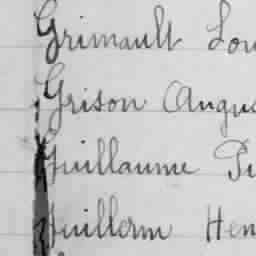 Grimault Lou
Grison Augus
Guillaume Pi
Guillerm Hen